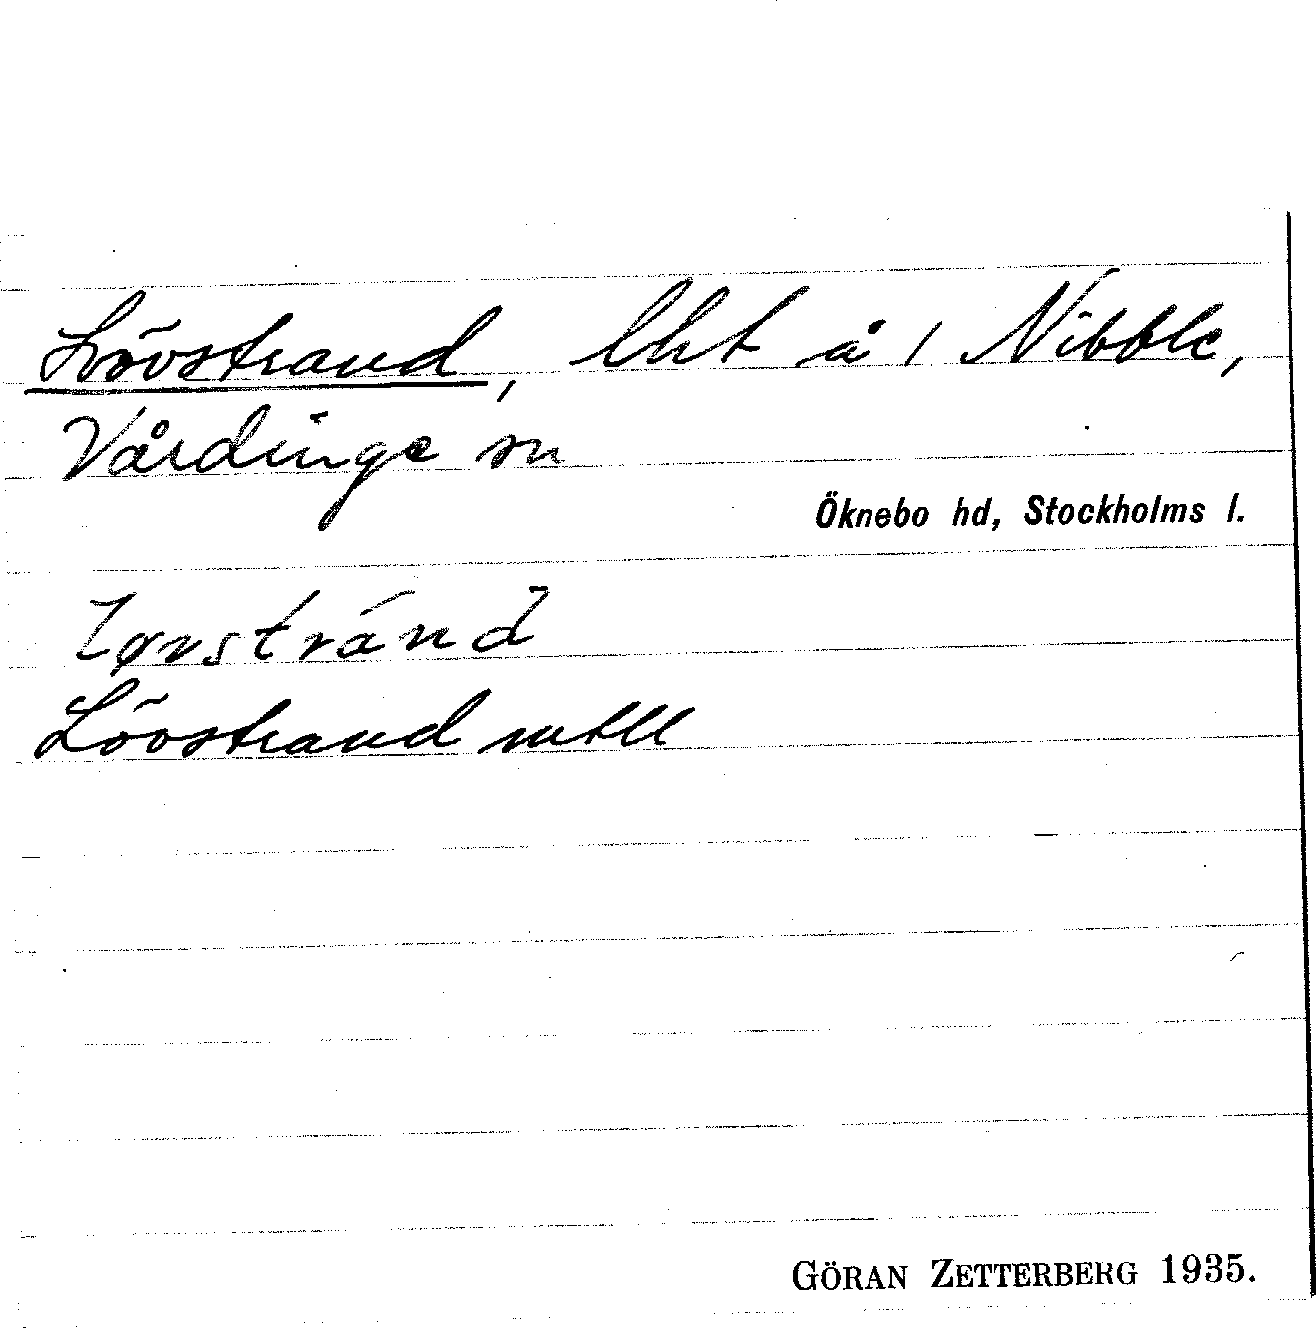 Lövstrand, lht å 1 Nibble,
Vårdinge sn
Öknebo hd, Stockholms l.
Løvstránd
Lövstrand mtll
GÖRAN ZETTERBERG 1935.